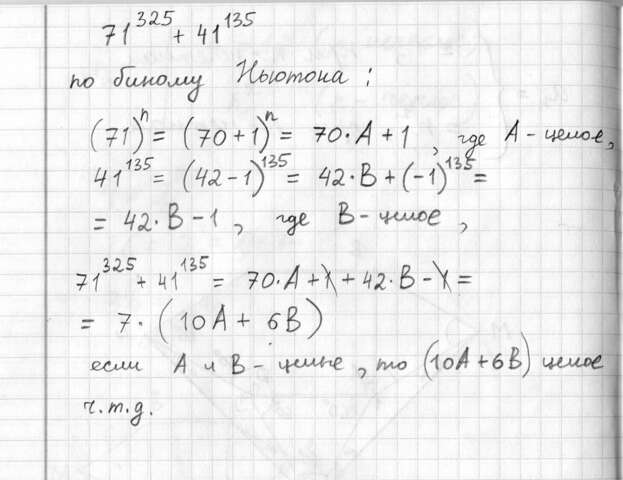 71^325 + 41^135
по биному Ньютона :
(71)^n = (70+1)^n = 70·A + 1 , где A - целое,
41^135 = (42-1)^135 = 42·B + (-1)^135 =
= 42·B - 1 , где B - целое ,
71^325 + 41^135 = 70·A + 1 + 42·B - 1 =
= 7·(10A + 6B)
если A и B - целые , то (10A+6B) целое
ч.т.д.